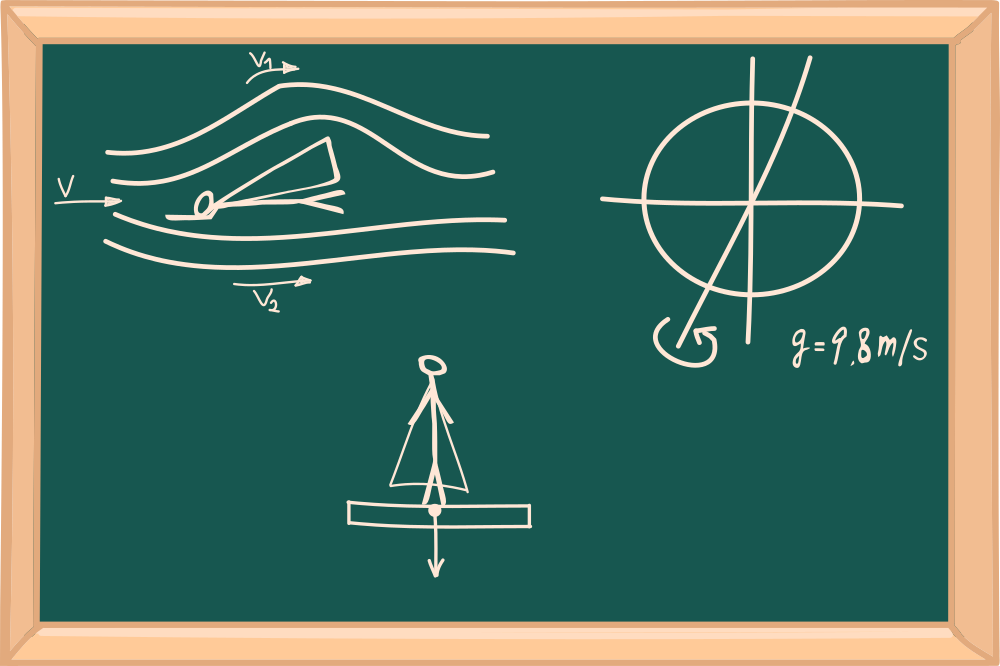 V₁
V
V₂
g=9.8m/s